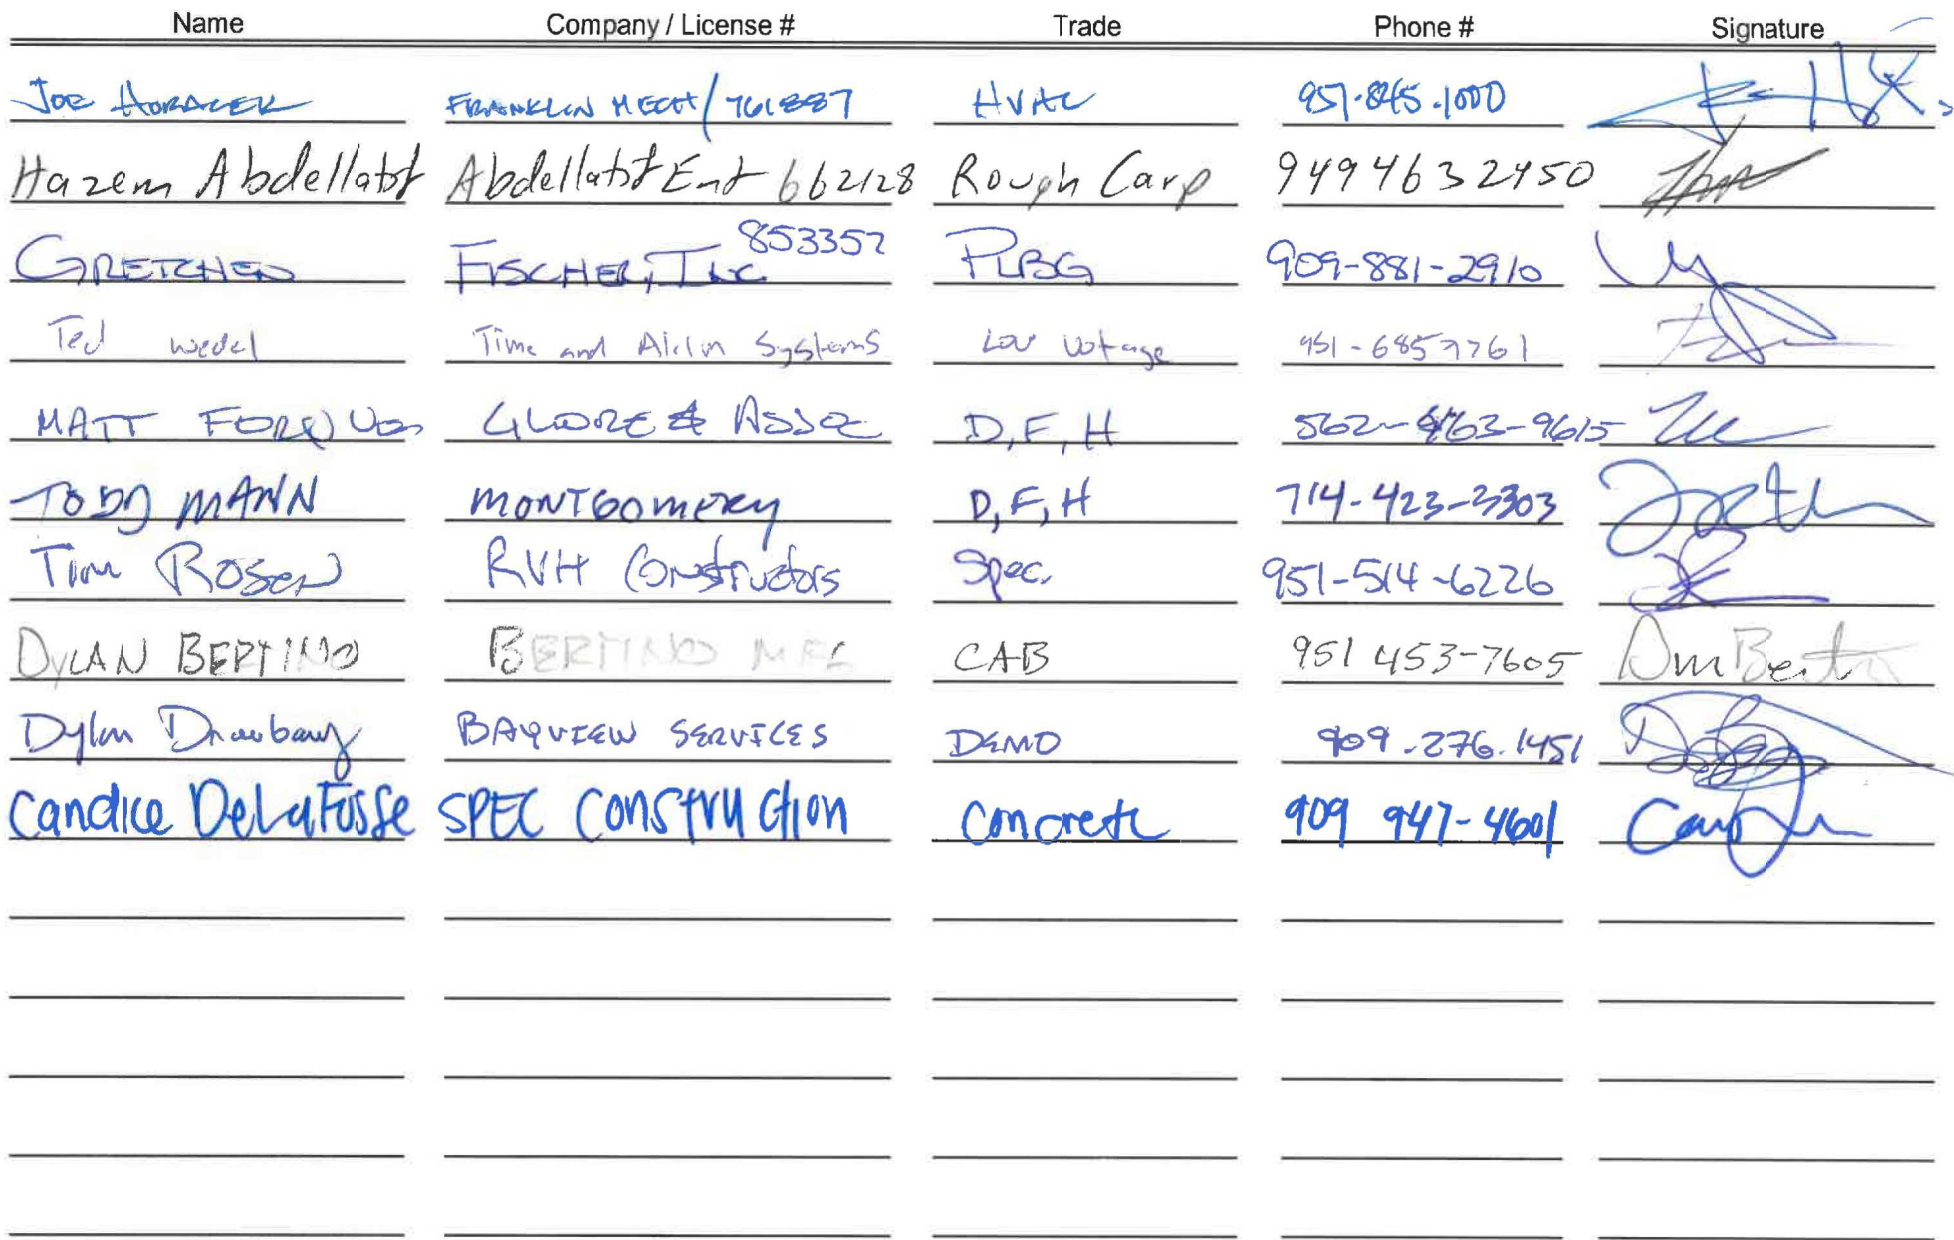 Name Company / License # Trade Phone # Signature
JOE HORACEK FRANKLIN MECH / 761887 HVAC 951-845-1000
Hazem Abdellatif Abdellatif Ent 662128 Rough Carp 9494632450
GRETCHEN FISCHER, INC 853357 PLBG 909-881-2910
Ted wedel Time and Alarm Systems Low Voltage 951-685-7761
MATT GLWORE & ASSOC D, F, H 562-463-9615
TODD MANN MONTGOMERY D, F, H 714-423-3303
Tim Rosen RVH Constructors Spec. 951-514-6226
DYLAN BERTINO BERTINO MFG CAB 951 453-7605
Dylan BAYVIEW SERVICES DEMO 909.276.1451
Candice DeLaFosse SPEC Construction Concrete 909 947-4601